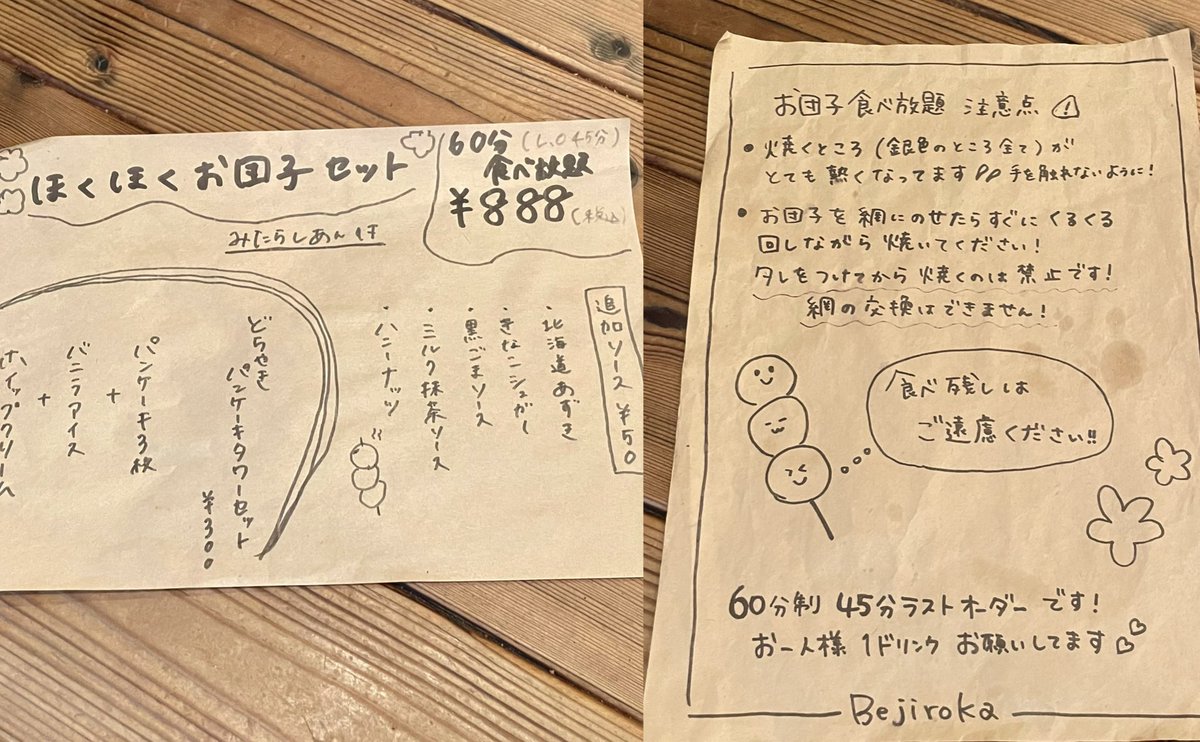 ほくほくお団子セット
60分(L.O45分)
食べ放題
¥888(税込)
みたらしあんほ
追加ソース ¥50
・北海道あずき
・きなこシュガー
・黒ごまソース
・ミルク抹茶ソース
・ハニーナッツ
どらやき
パンケーキタワーセット
¥300
パンケーキ3枚
+
バニラアイス
+
ホイップクリーム
お団子食べ放題 注意点
• 焼くところ(銀色のところ全て)が
とても熱くなってます 手を触れないように!
• お団子を網にのせたらすぐにくるくる
回しながら焼いてください!
タレをつけてから焼くのは禁止です!
網の交換はできません!
食べ残しは
ご遠慮ください!!
60分制 45分ラストオーダーです!
お一人様 1ドリンク お願いしてます
Bejiroka